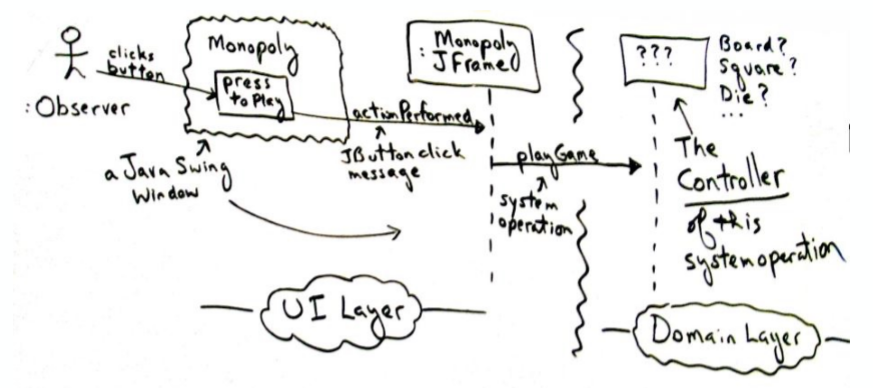 clicks
button
: Observer
Monopoly
press
to Play
a Java Swing
Window
actionPerformed
JButton click
message
: Monopoly
JFrame
playGame
system
operation
UI Layer
???
Board?
Square?
Die?
...
The
Controller
of this
system operation
Domain Layer